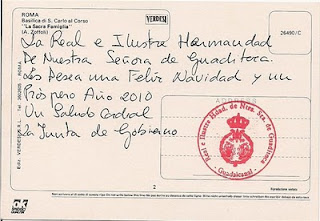 ROMA
Basilica di S. Carlo al Corso
"La Sacra Famiglia"
(A. Zoffoli)
VERDESI
26490/C
La Real e Ilustre Hermandad
De Nuestra Señora de Guaditoca.
Les Desea una Feliz Navidad y un
Próspero Año 2010
Un Saludo Cordial
La Junta de Gobierno
Real e Ilustre Hdad. de Ntra. Sra. de Guaditoca
Guadalcanal
2